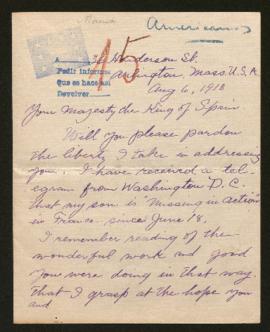 Americano
15
A
Pedir informe
Que se hace así
Devolver
Henderson St.
Arlington, Mass. U.S.A.
Aug 6, 1918
Your Majesty the King of Spain
Will you please pardon
the liberty I take in addressing
you. I have received a tel-
egram from Washington D.C.
that my son is missing in action
in France since June 18.
I remember reading of the
wonderful work and good
you were doing in that way.
That I grasp at the hope you
and